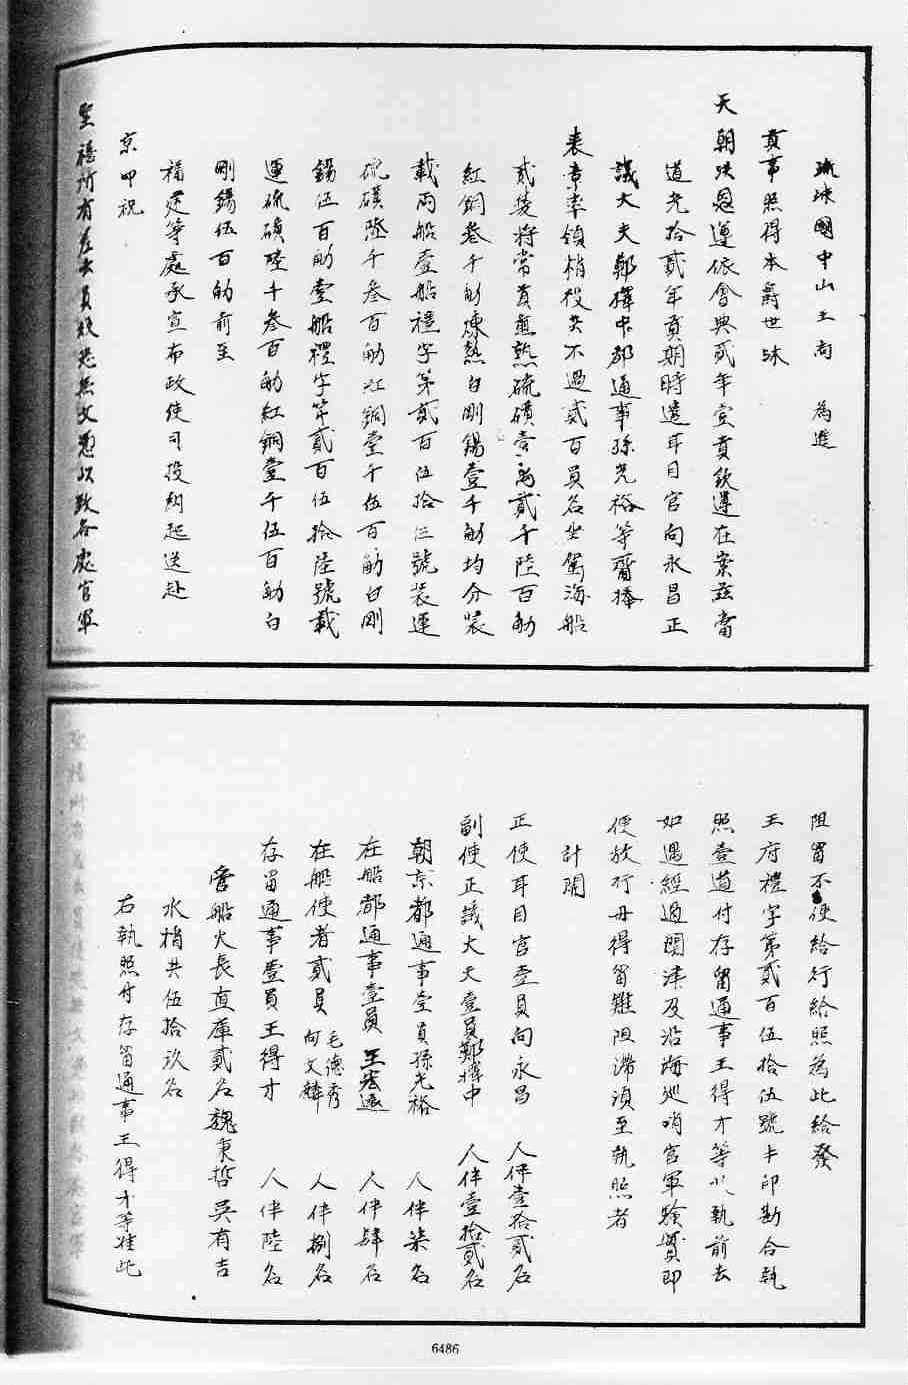 琉球國中山王尚　為進
貢事照得本爵世沐
天朝洪恩遵依會典貳年壹貢欽遵在案茲當
道光拾貳年貢期時遣耳目官向永昌正
議大夫鄭擇中都通事孫光裕等齎捧
表章率領梢役共不過貳百員名坐駕海船
貳隻將常貢煎熟硫磺壹萬貳千陸百觔
紅銅叁千觔煉熟白剛錫壹千觔均分裝
載兩船壹船禮字第貳百伍拾伍號裝運
硫磺陸千叁百觔紅銅壹千伍百觔白剛
錫伍百觔壹船禮字第貳百伍拾陸號載
運硫磺陸千叁百觔紅銅壹千伍百觔白
剛錫伍百觔前至
福建等處承宣布政使司投納起送赴
京叩祝
聖禧所有差去員役恐無文憑以致各處官軍
阻留不便給行給照為此給發
王府禮字第貳百伍拾伍號半印勘合執
照壹道付存留通事王得才等收執前去
如遇經過關津及沿海巡哨官軍驗實即
便放行毋得留難阻滯須至執照者
計開
正使耳目官壹員向永昌　人伴壹拾貳名
副使正議大夫壹員鄭擇中　人伴壹拾貳名
朝京都通事壹員孫光裕　人伴柒名
在船都通事壹員王宏遠　人伴肆名
在船使者貳員毛德秀向文麟　人伴捌名
存留通事壹員王得才　人伴陸名
管船火長直庫貳名魏秉哲吳有吉
水梢共伍拾玖名
右執照付存留通事王得才等准此
6486